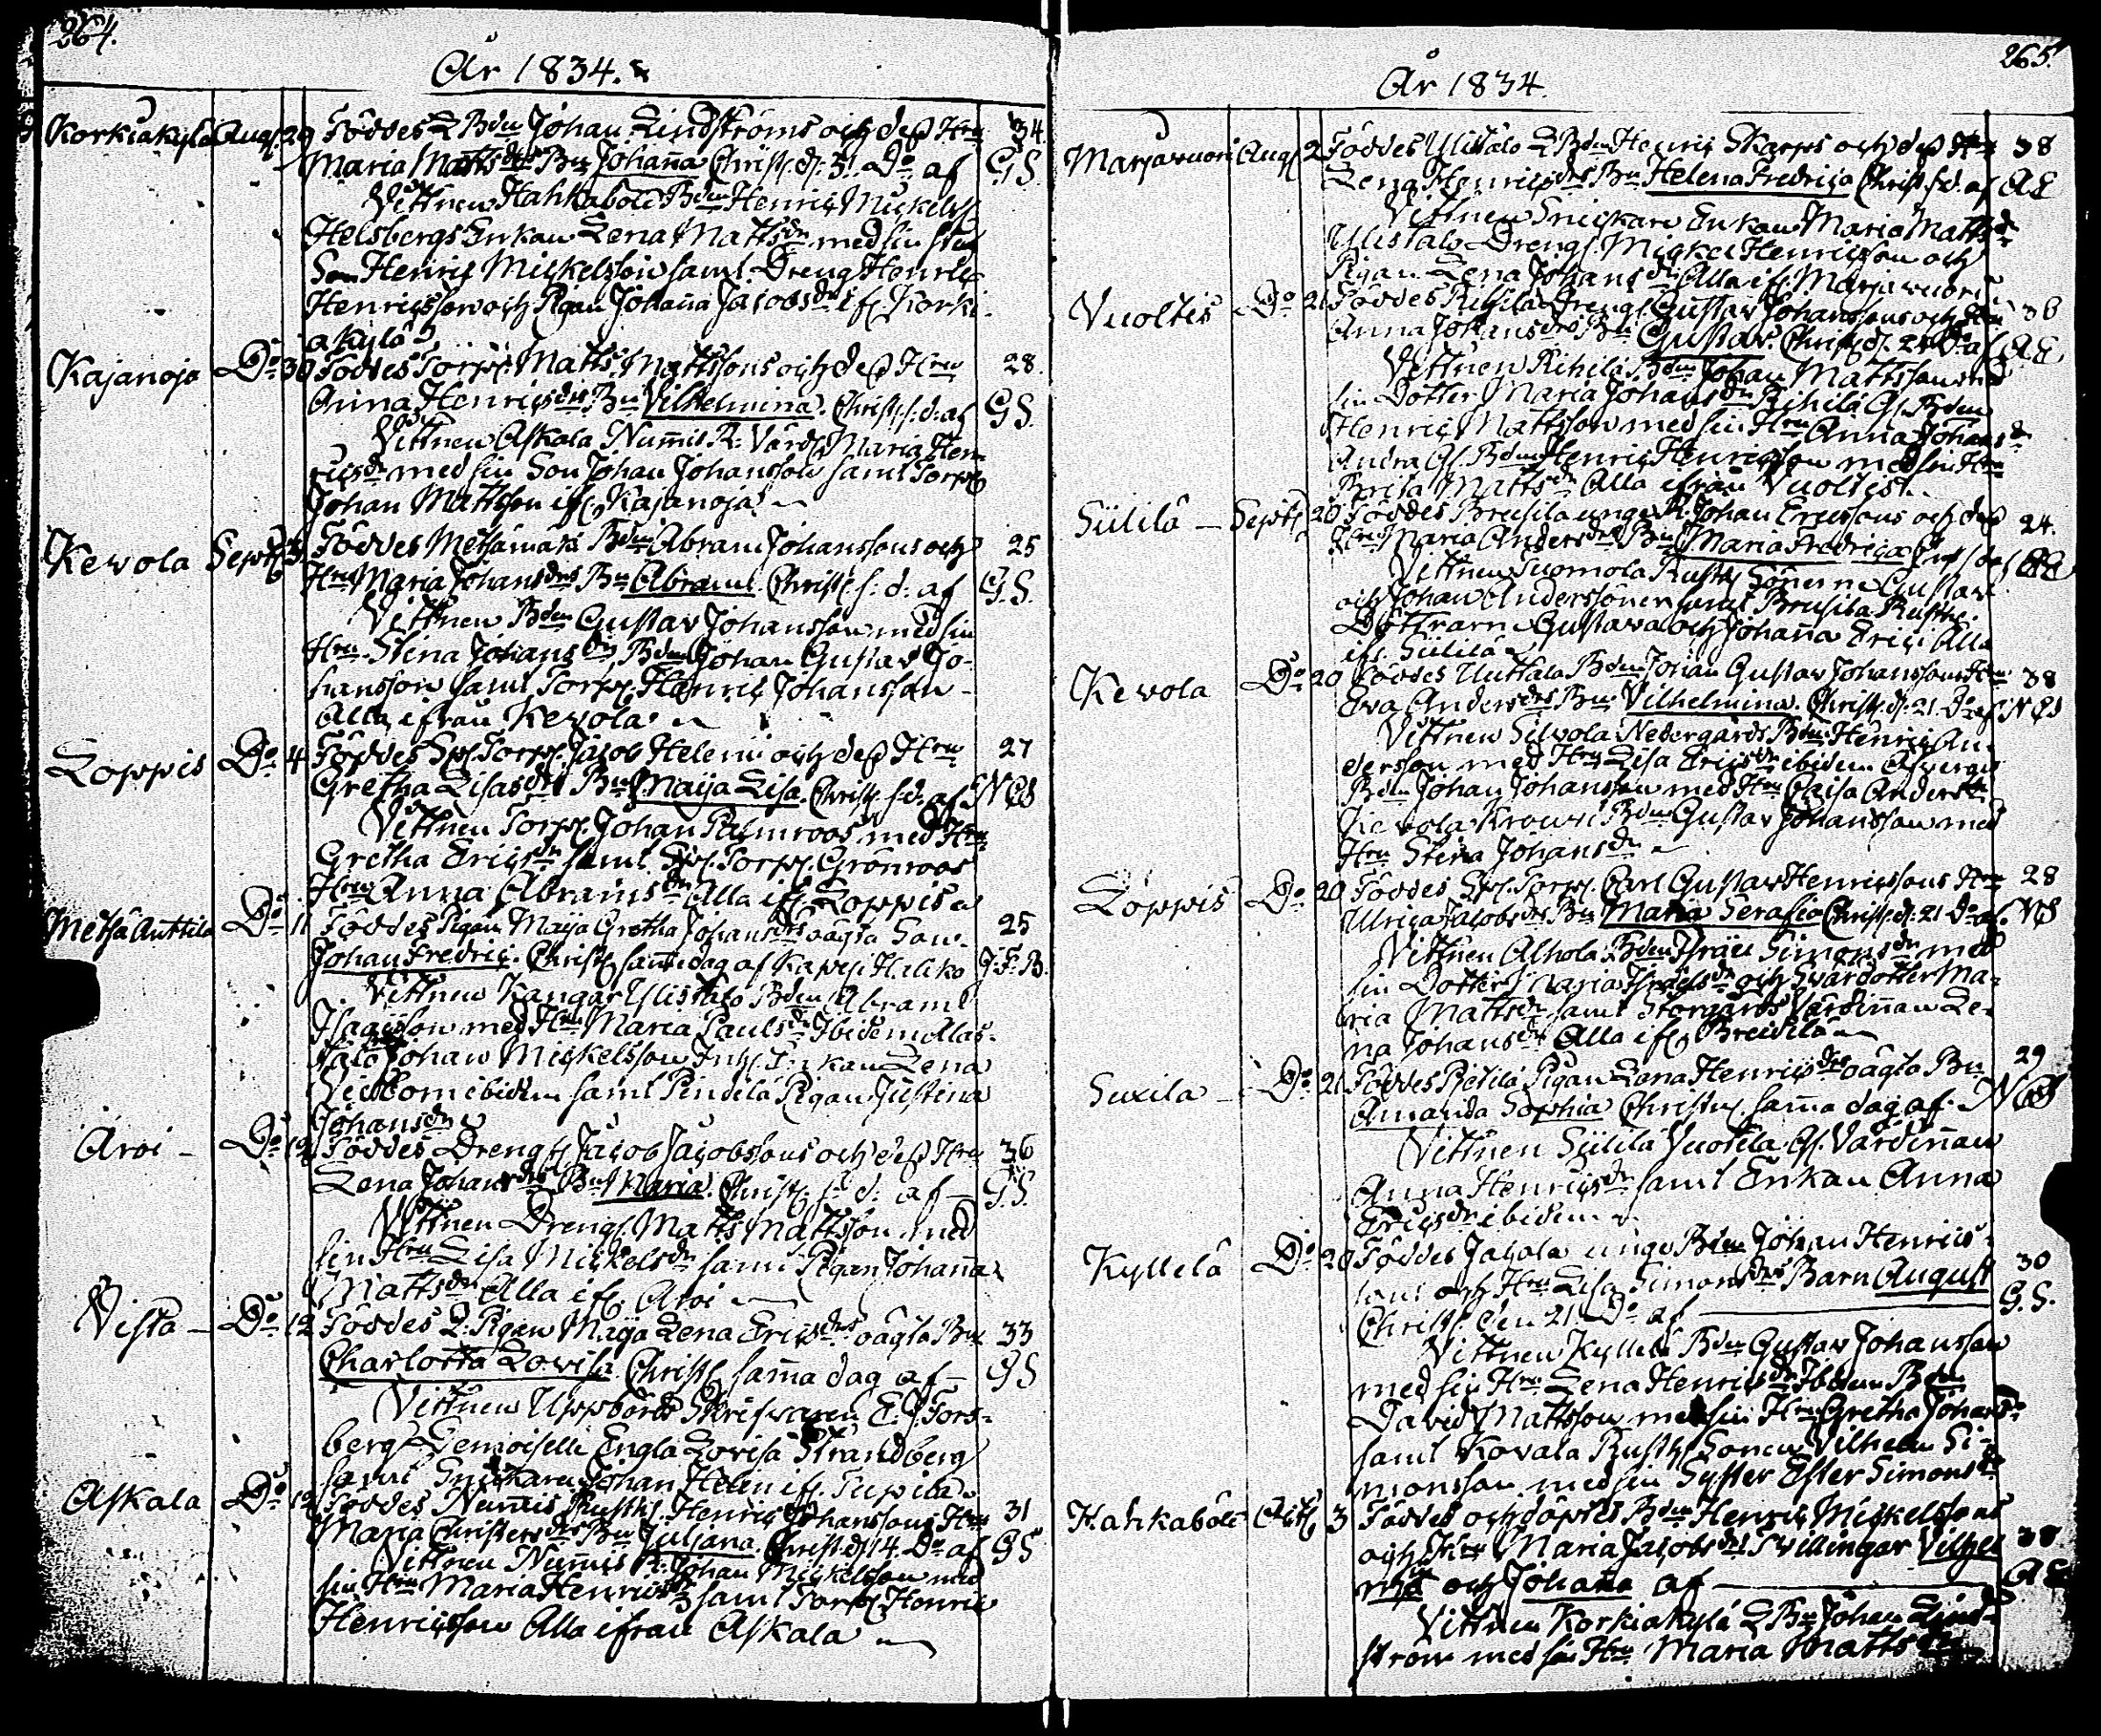 264.
År 1834.
Korkiakylä Aug. 29 Föddes L Bden Johan Lindströms och dess Hru 34
Maria Mattsdrs Bn Johanna Christ. d. 31 Do af G S.
Vittnen Hahkabole Bden Henric Mickelss.
Helsbergs Enkan Lena Mattsdr med sin
Son Henric Mickelsson samt Dreng Henric
Henricsson och Pigan Johanna Jacobsdr if. Korki-
akylä
Kajanoja Do 30 Föddes Torpp. Matts Mattssons och dess Hru 28.
Anna Henricsdrs Bn Vilhelmina. Christ. s. d. af G S.
Vittnen Askala Nummis R. Värd. Maria Hen-
ricsdr med sin Son Johan Johansson samt Torpp.
Johan Mattsson if. Kajanoja
Kevola Sept. 3. Föddes Metsämaas Bden Abram Johanssons och 25
Hru Maria Johansdrs Bn Abraml. Christ. s. d. af G. S.
Vittnen Bden Gustav Johansson med sin
Hru Stina Johansdr, Bden Johan Gustav Jo-
hansson samt Torpp. Henric Johansson
Alla ifrån Kevola
Loppis Do 4 Föddes Spl. Torpp. Jacob Helenii och dess Hru 27
Gretha Lisasdrs Bn Maija Lisa. Christ. s. d. af
Vittnen Torpp. Johan Palmroos med Hru
Gretha Ericsdr samt Spl. Torpp. Grönroos
Hru Anna Abramsdr Alla if. Loppis
Metsä Anttila Do 11 Föddes Pigan Maija Gretha Johansdrs oägta Son 25
Johan Fredric. Christ. samma dag af Kapel. Haliko J. F. B.
Vittnen Kangar Ylistalo Bden Abraml
Isaacsson med Hru Maria Paulsdr Ibidem Alas-
talo Johan Mickelsson Inh. Enkan Lena
Vellom ibidem samt Pendilä Pigan Justina
Johansdr
Aroi Do 12 Föddes Drengs Jacob Jacobssons och dess Hru 36
Lena Johansdrs Bn Maria. Christ. s. d. af G. S.
Vittnen Dreng. Matts Mattsson med
sin Hru Lisa Mickelsdr samt Pigan Johanna
Mattsdr Alla if. Aroi
Vista Do 12 Föddes Q. Pigan Maija Lena Ericsdrs oägta Bn 33
Charlotta Lovisa. Christ. samma dag af G S
Vittnen Uppbörds Skrifvaren E. J. Fors-
berg Demoiselle Engla Lovisa Strandberg
samt Snickaren Johan Helin if.
Askala Do 12 Föddes Nummis Rusth. Henric Johanssons Hru 31
Maria Christersdrs Bn Juliana. Christ. d. 14. Do af G S
Vittnen Nummis R. Johan Mickelsson med
sin Hru Maria Henricsdr samt Torpp. Henric
Henricsson Alla ifrån Askala
265.
År 1834.
Marjavuori Aug. 2 Föddes Ylistalo L Bden Henric Skarps och dess Hru 38
Lena Henricsdrs Bn Helena Fredrica Christ. s. d. af A E
Vittnen Snickare Enkan Maria Mattsdr
Ylistalo Dreng. Mickel Henricsson och
Pigan Lena Johansdr Alla if. Marjavuori
Vuoltis Do 21 Föddes Rihilä Dreng. Gustav Johanssons och Hru 36
Anna Johansdrs Bn Gustav. Christ. d. Do af A E
Vittnen Rihilä Bden Johan Mattsson med
sin Dotter Maria Johansdr Rihilä Gl. Bden
Henric Mattsson med sin Hru Anna Johansdr
Andra Gl. Bden Henric Henricsson med sin Hru
Brita Mattsdr Alla ifrån Vuoltis
Siililä Sept. 20 Föddes Breisilä unge R. Johan Ericssons och dess 24.
Hru Maria Andersdrs Bn Maria Fredrica
Vittnen Tuomola Rusth. Sönerne Gustav
och Johan Anderssöner samt Breisilä Rusth.
Döttrarne Gustava och Johanna Eric. Alla
if. Siililä
Kevola Do 20 Föddes Uutitalo Bden Johan Gustav Johanssons Hru 38
Eva Andersdrs Bn Vilhelmina. Christ. d. 21. Do af
Vittnen Silvola Nedergårds Bden Henric An-
dersson med Hru Lisa Ericsdr ibidem
Bden Johan Johansson med Hru Caisa Andersdr
Kevola Krouvi Bden Gustav Johansson med
Hru Stina Johansdr
Loppis Do 20 Föddes Spl. Torpp. Carl Gustav Henricssons Hru 28
Ulrica Jacobsdrs Bn Maria Serafia Christ. d. 21 Do af
Vittnen Alhola Bden Israel Simons med
sin Dotter Maria Israelsdr och Svärdotter Ma-
ria Mattsdr samt Storgårds Värdinnan Le-
na Johansdr Alla if. Breidilä
Suxila Do 21 Föddes Pietilä Pigan Lena Henricsdrs oägta Bn 29
Amanda Sophia Christn. samma dag af
Vittnen Siililä Vuotila Gl. Värdinnan
Anna Henricsdr samt Enkan Anna
Ericsdr ibidem
Kyllelä Do 20 Föddes Jacola unge Bden Johan Henrics- 30
sons och Hru Lisa Simonsdrs Barn August
Christ. den 21. Do af G. S.
Vittnen Kyllelä Bden Gustav Johansson
med sin Hru Lena Henricsdr Ibidem Bden
David Mattsson med sin Hru Gretha Johansdr
samt Kovala Rusth. Sonen Vilhelm Si-
monsson med sin Syster Ester Simonsdr
Hahkabole Oct. 3 Föddes och döptes Bden Henric Mickelssons
och Hru Maria Jacobsdrs Tvillingar Vilhel 38
mina och Johanna af A E
Vittnen Korkiakylä L Bn Johan Lind-
ström med sin Hru Maria Mattsdr